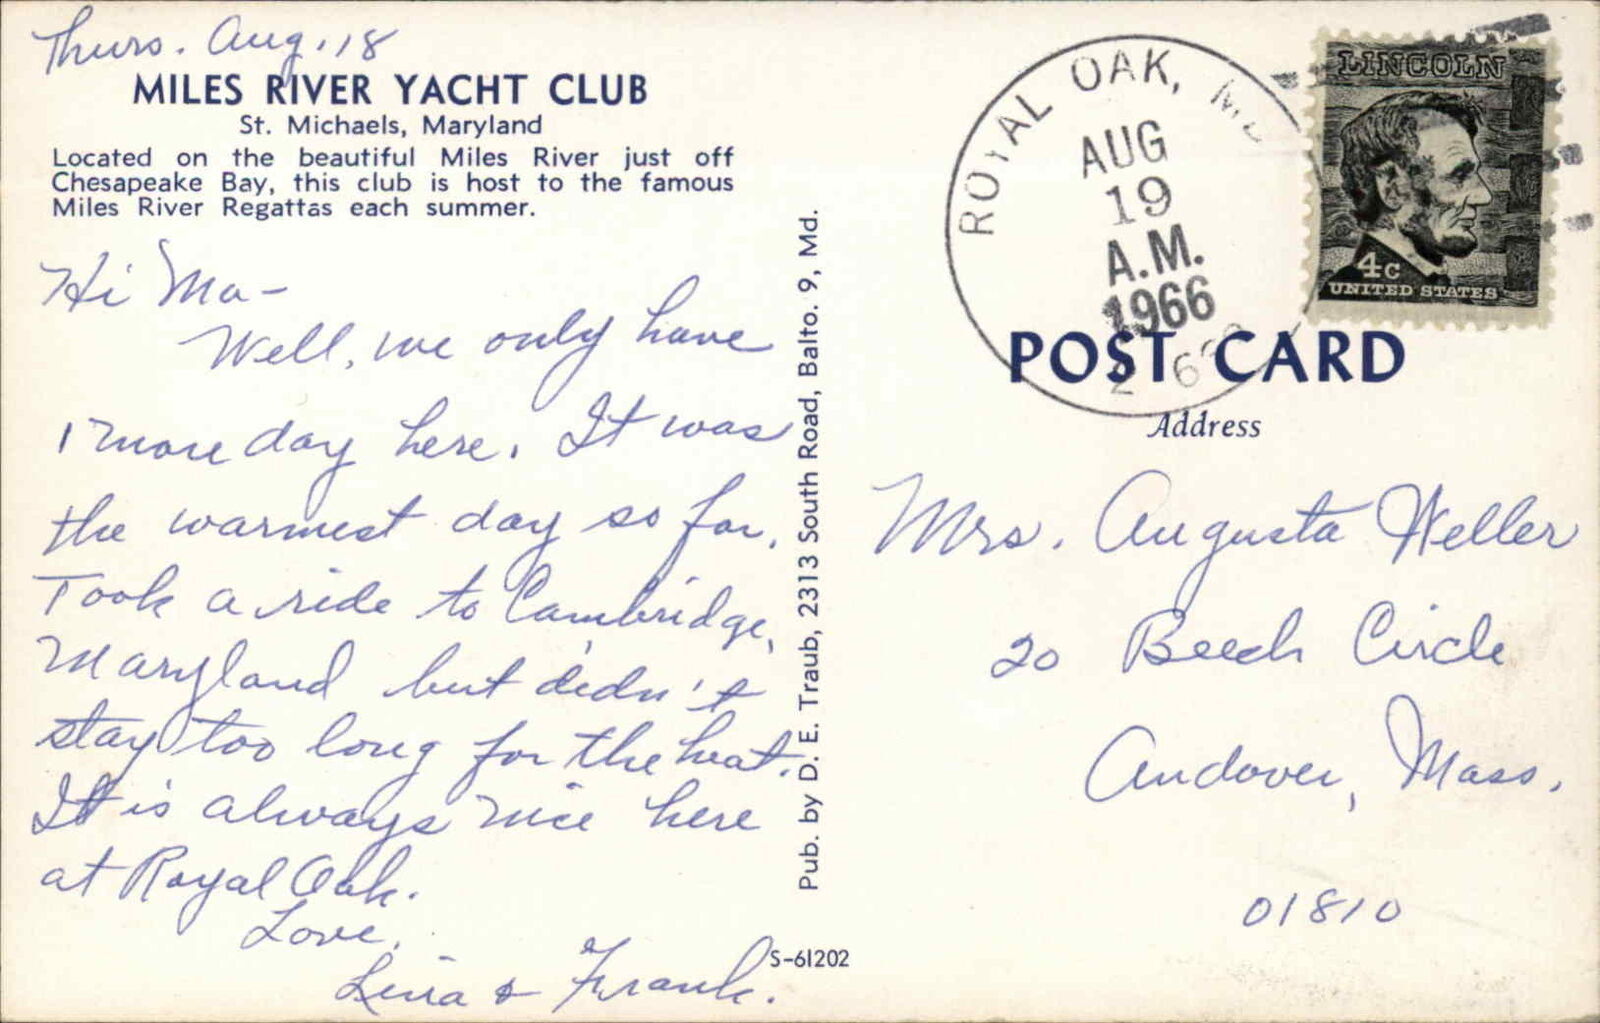 Thurs. Aug. 18
MILES RIVER YACHT CLUB
St. Michaels, Maryland
Located on the beautiful Miles River just off
Chesapeake Bay, this club is host to the famous
Miles River Regattas each summer.
Hi Ma-
Well, we only have
1 more day here. It was
the warmest day so far.
Took a ride to Cambridge,
Maryland but didn't
stay too long for the heat.
It is always nice here
at Royal Oak.
Love,
Lena & Frank.
Pub. by D. E. Traub, 2313 South Road, Balto. 9, Md.
S-61202
ROYAL OAK, MD
AUG
19
A.M.
1966
LINCOLN
4c
UNITED STATES
POST CARD
Address
Mrs. Augusta Weller
20 Beech Circle
Andover, Mass.
01810